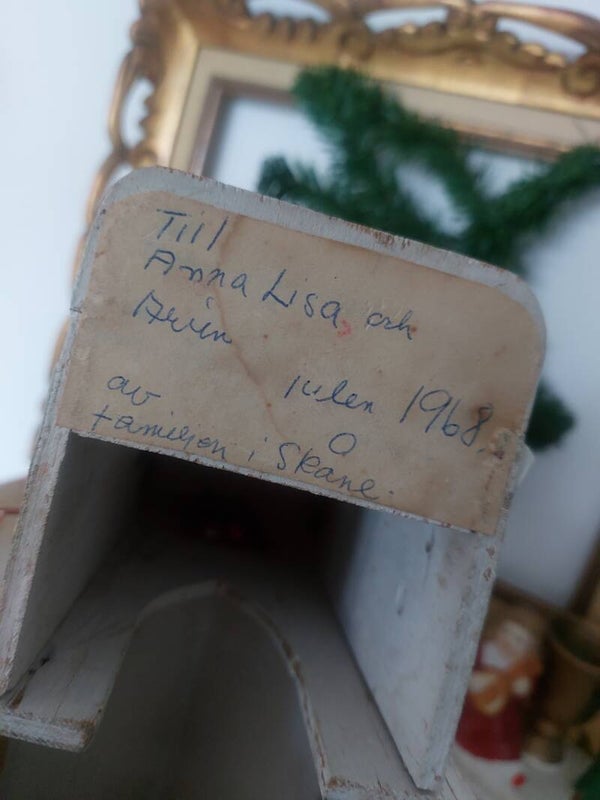 Till
Anna Lisa och
julen 1968.
av
familjen i Skåne.